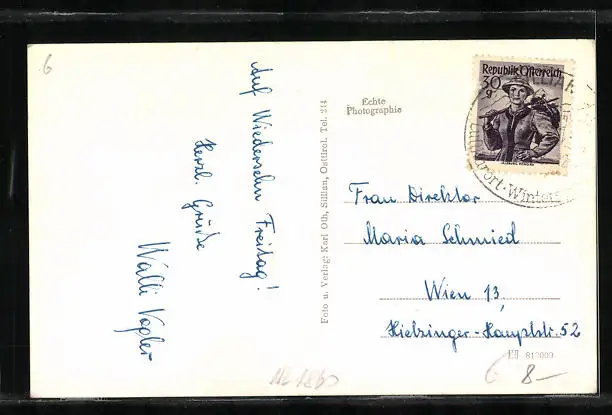 6
Auf Wiedersehn Freitag!
Herzl. Grüße
Walli Vogler
Foto u. Verlag: Karl Oth, Sillian, Osttirol. Tel. 214
Echte
Photographie
Republik Österreich
30
g
Luftkurort · Winters
Frau Direktor
Maria Schmied
Wien 13,
Hietzinger-Hauptstr. 52
812009
8—